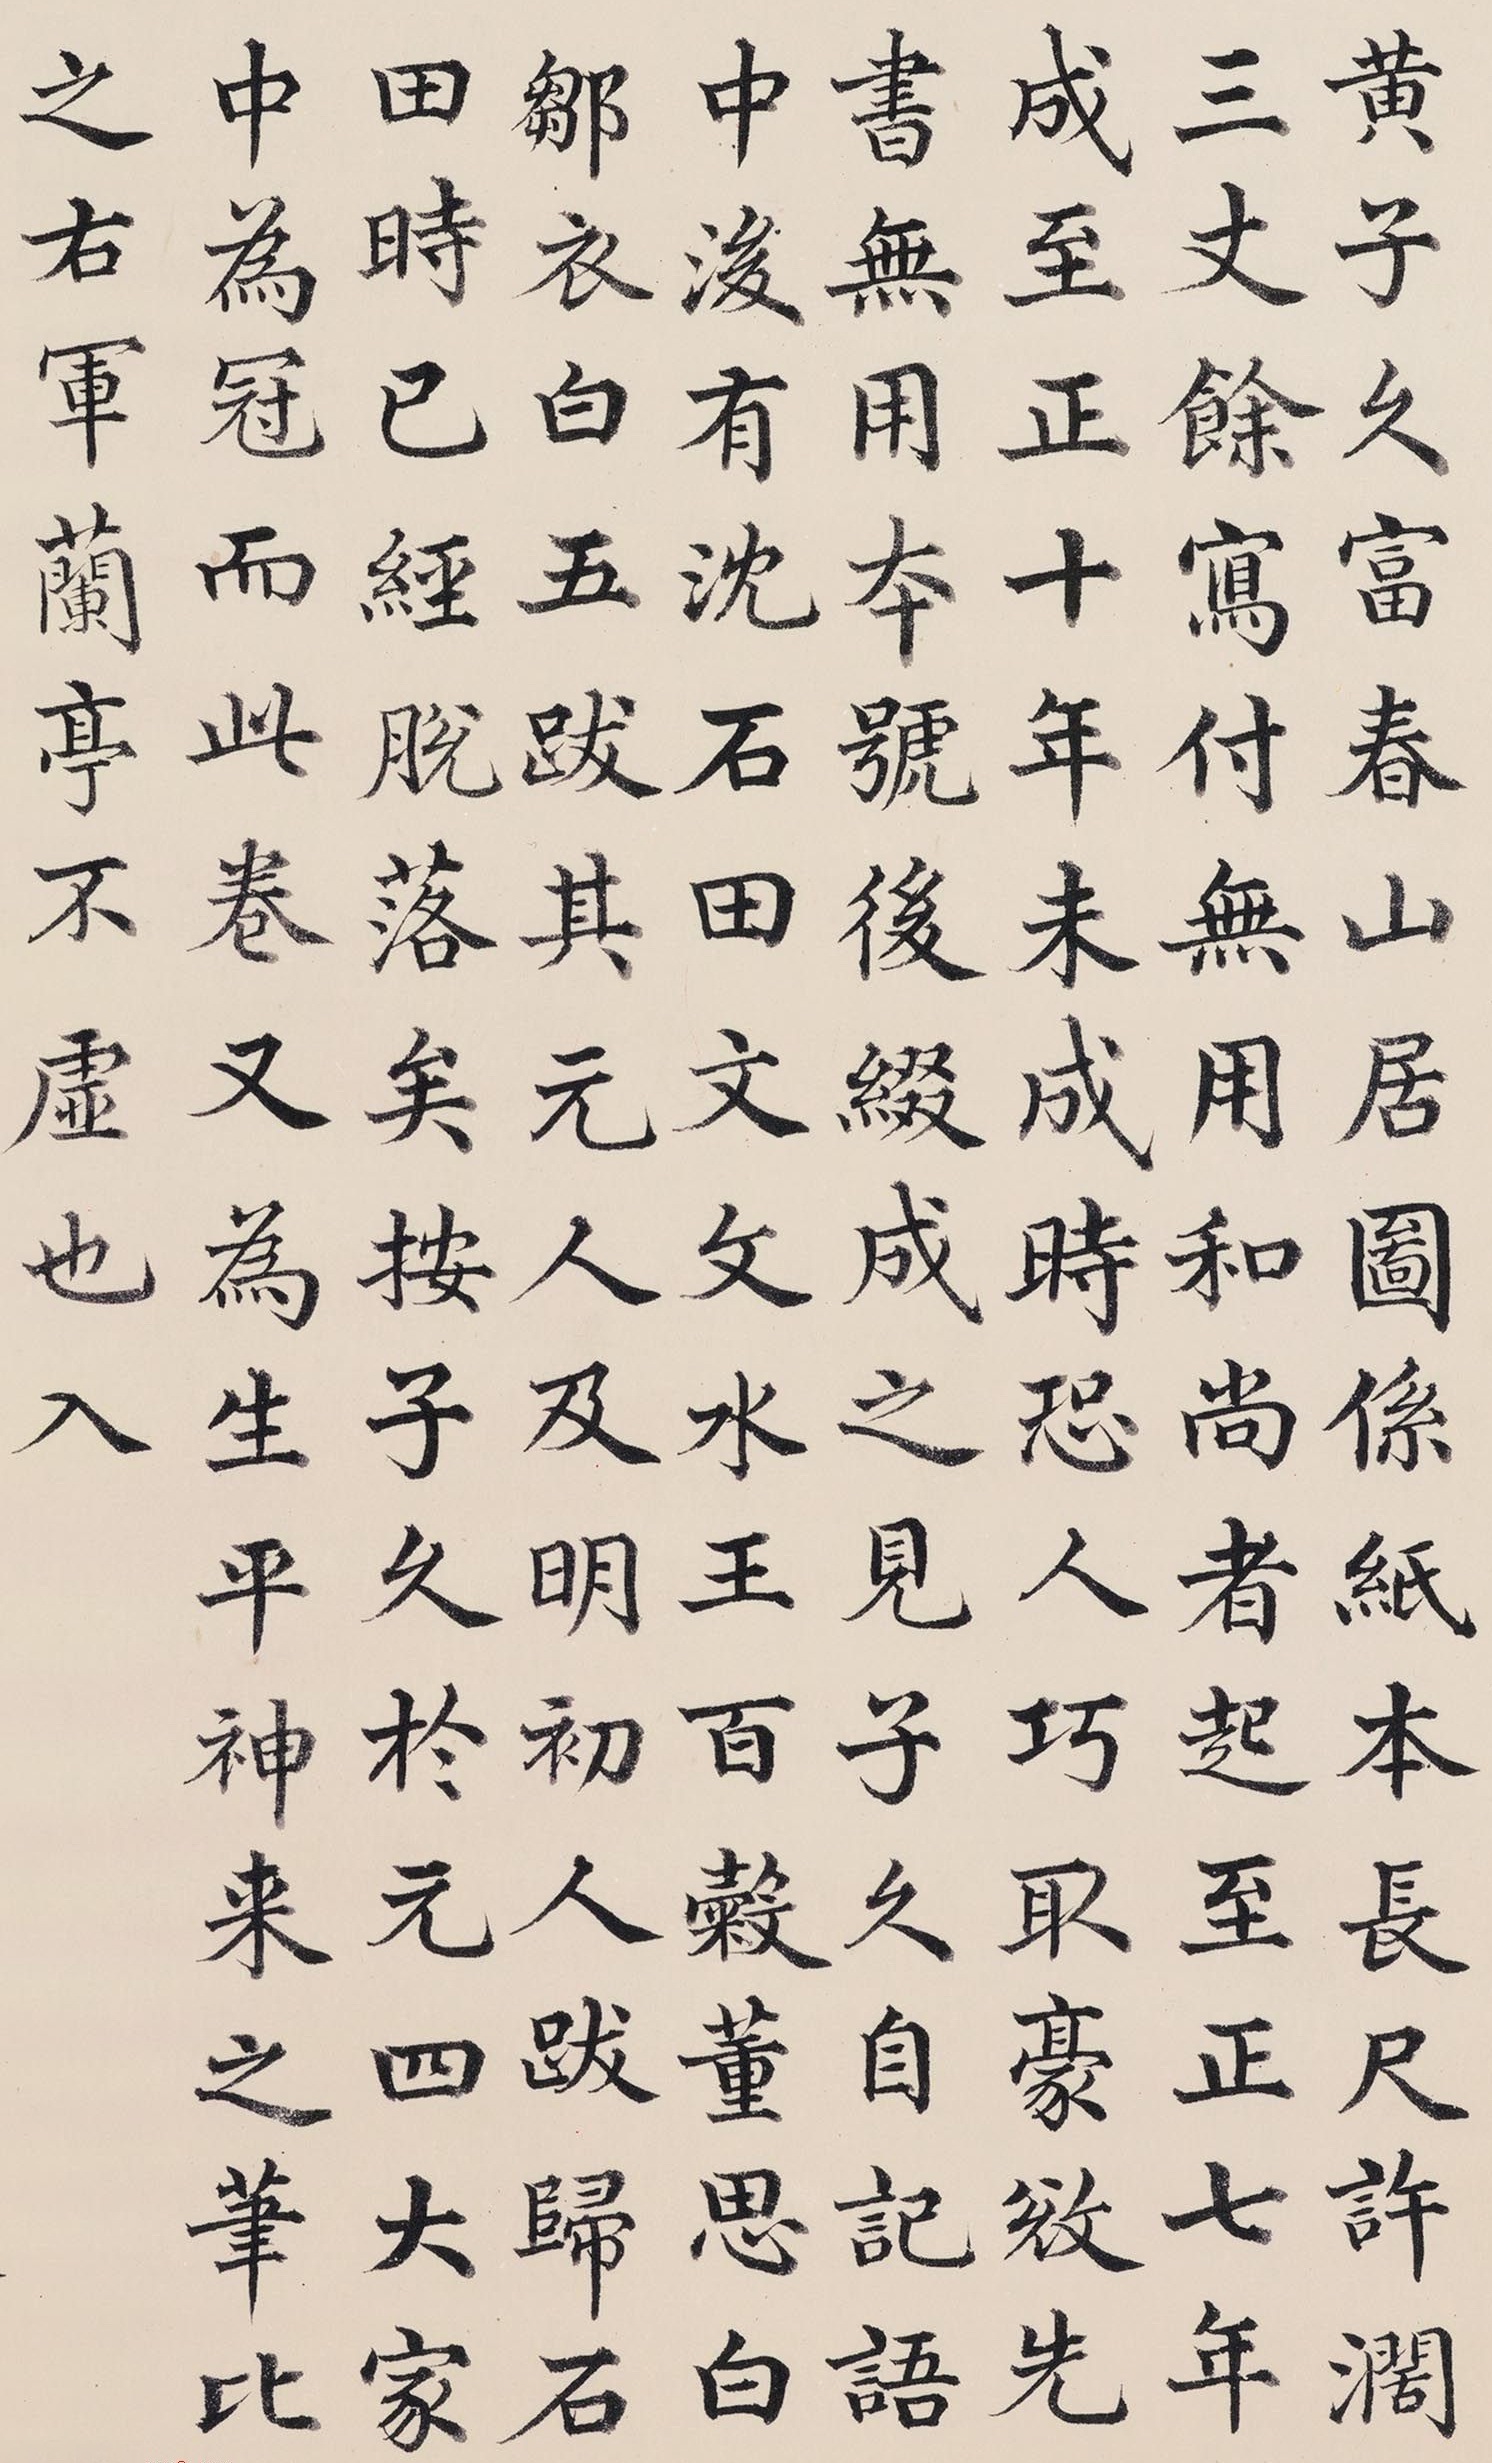 黄子久富春山居圖係紙本長尺許濶
三丈餘寫付無用和尚者起至正七年
成至正十年未成時恐人巧取豪敚先
書無用本號後綴成之見子久自記語
中後有沈石田文文水王百穀董思白
鄒衣白五跋其元人及明初人跋歸石
田時已經脫落矣按子久於元四大家
中為冠而此卷又為生平神来之筆比
之右軍蘭亭不虛也入